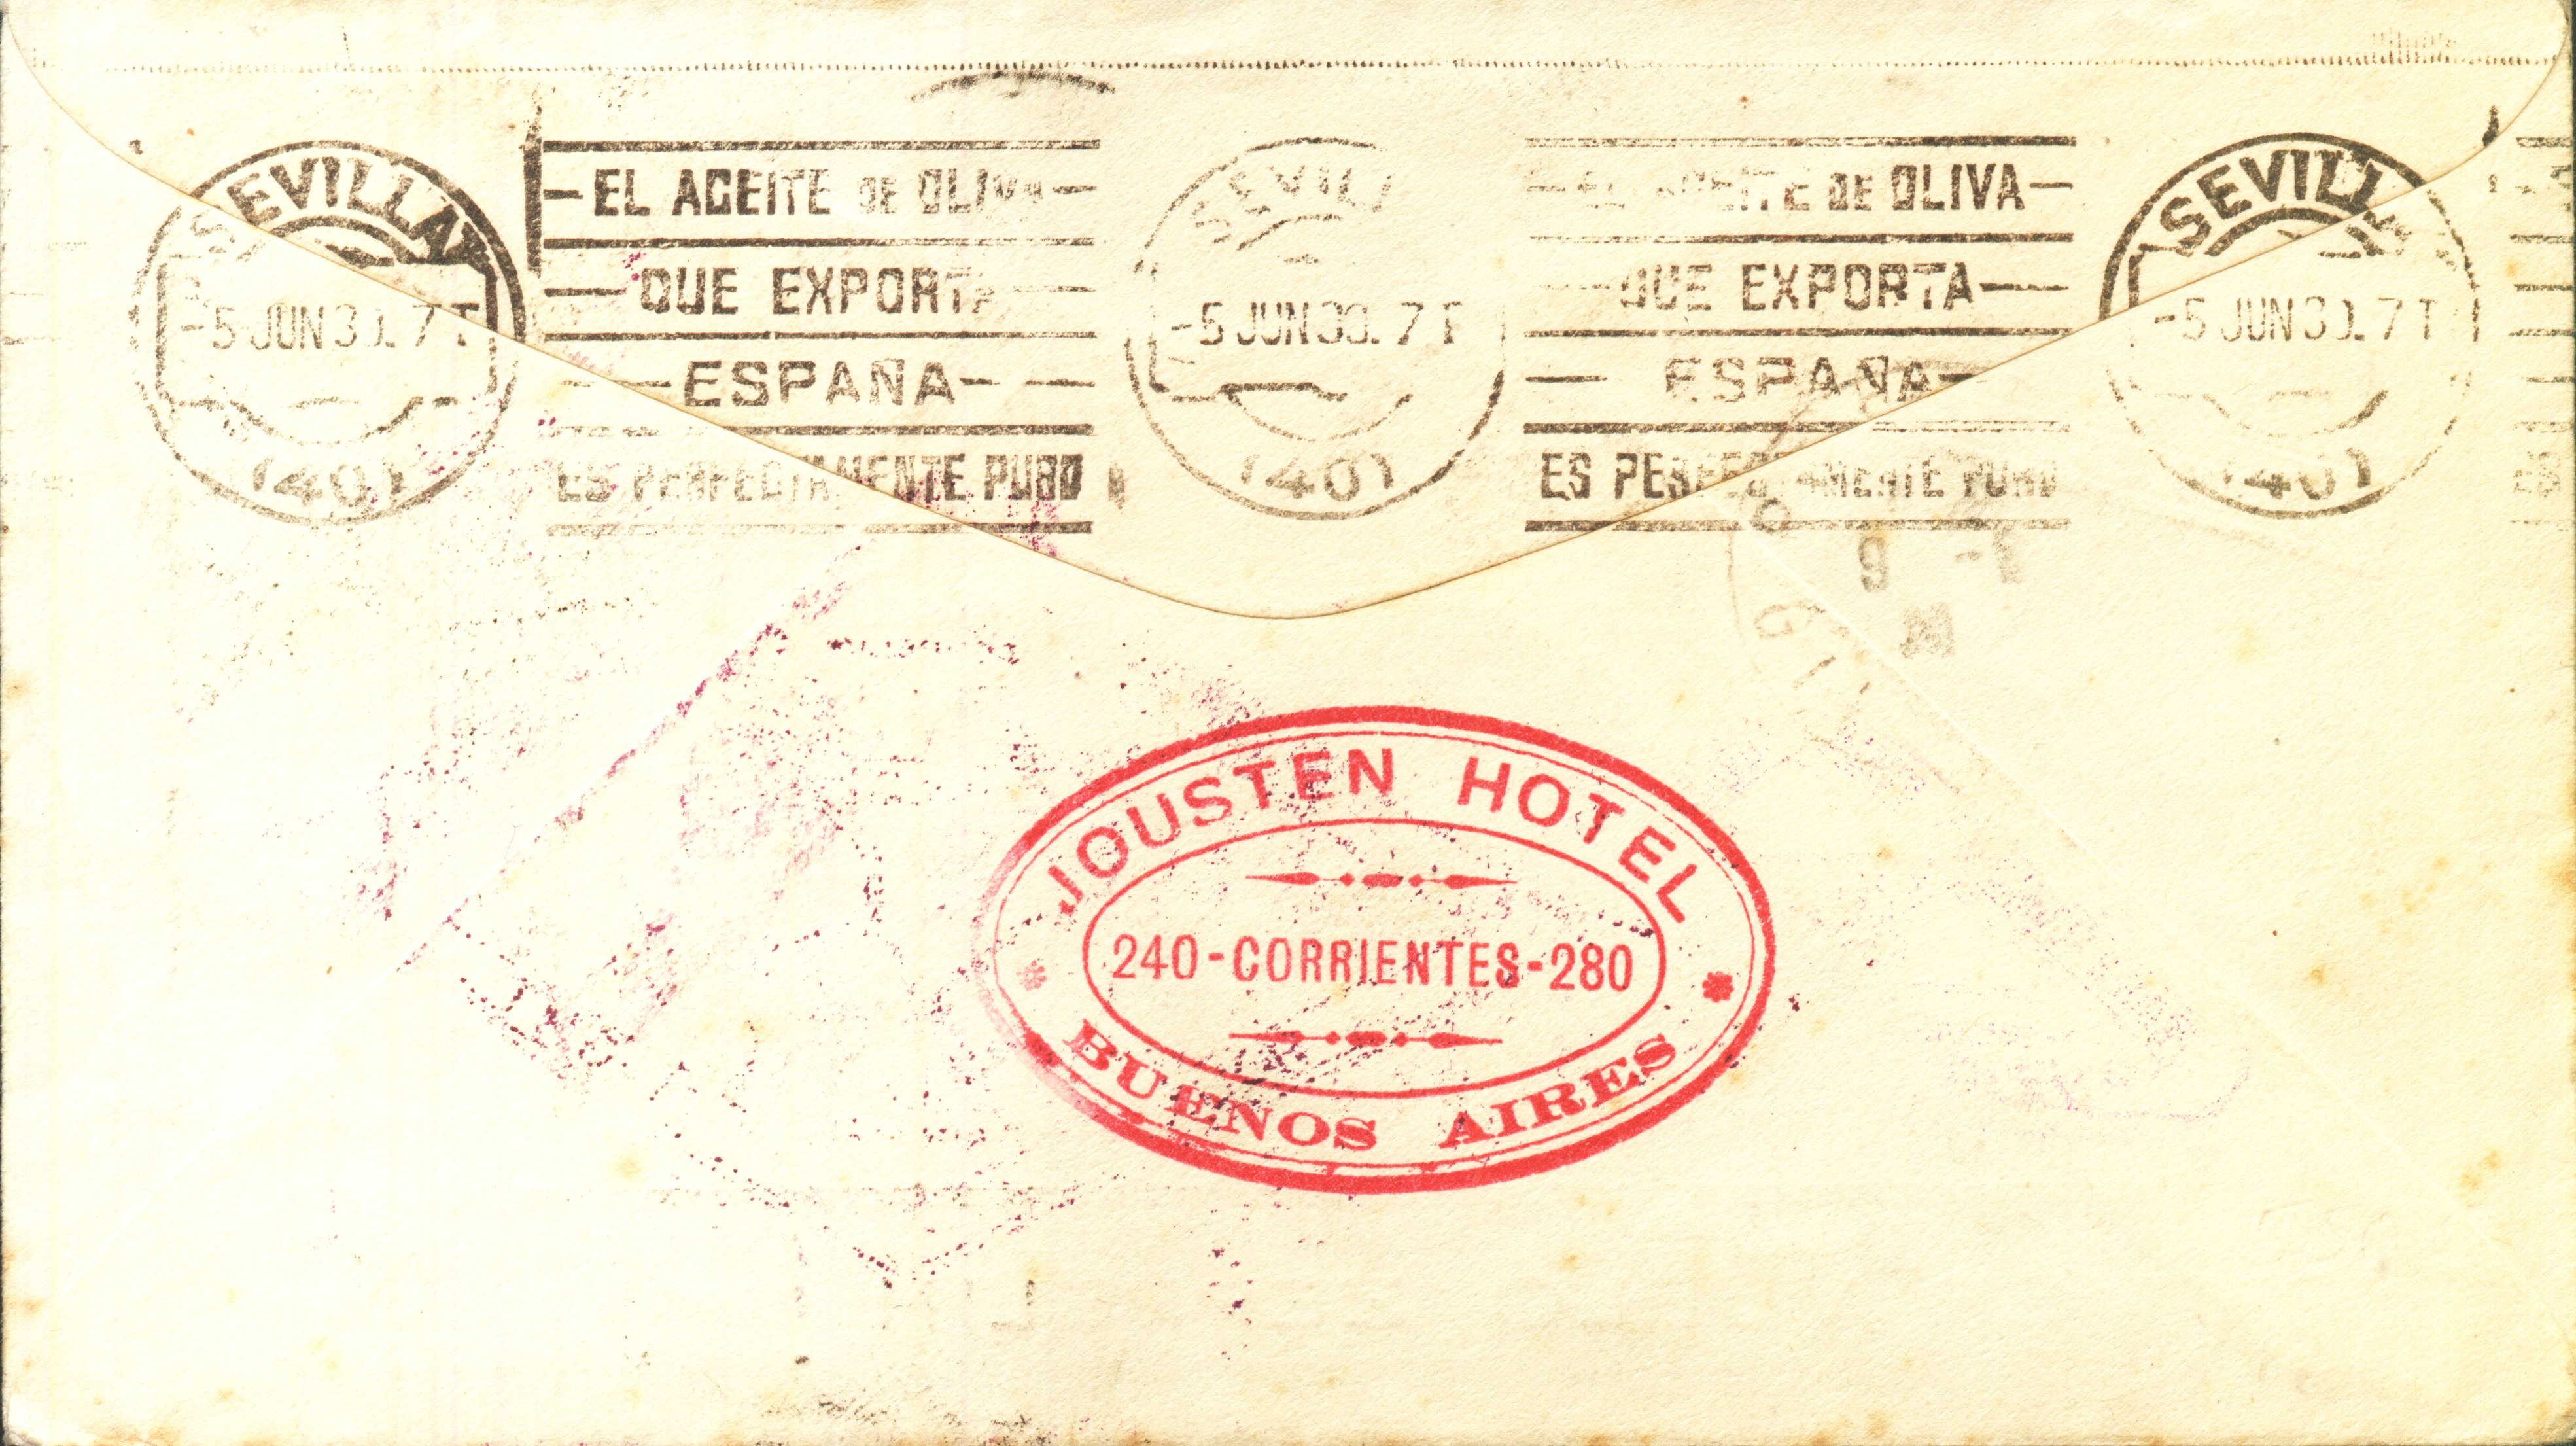 SEVILLA
-5 JUN 30. 7 T
(40)
EL ACEITE DE OLIVA
QUE EXPORTA
ESPAÑA
ES PERFECTAMENTE PURO
SEVILLA
-5 JUN 30. 7 T
(40)
EL ACEITE DE OLIVA
QUE EXPORTA
ESPAÑA
ES PERFECTAMENTE PURO
SEVILLA
-5 JUN 30. 7 T
(40)
ES
JOUSTEN HOTEL
240-CORRIENTES-280
BUENOS AIRES